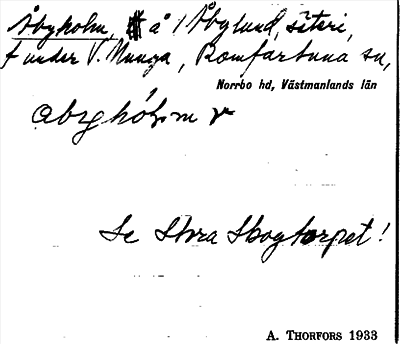 Åbyholm, å 1 Åbylund, säteri,
f under V. Munga, Romfartuna sn,
Norrbo hd, Västmanlands län
Se Stora Skogtorpet!
A. THORFORS 1933